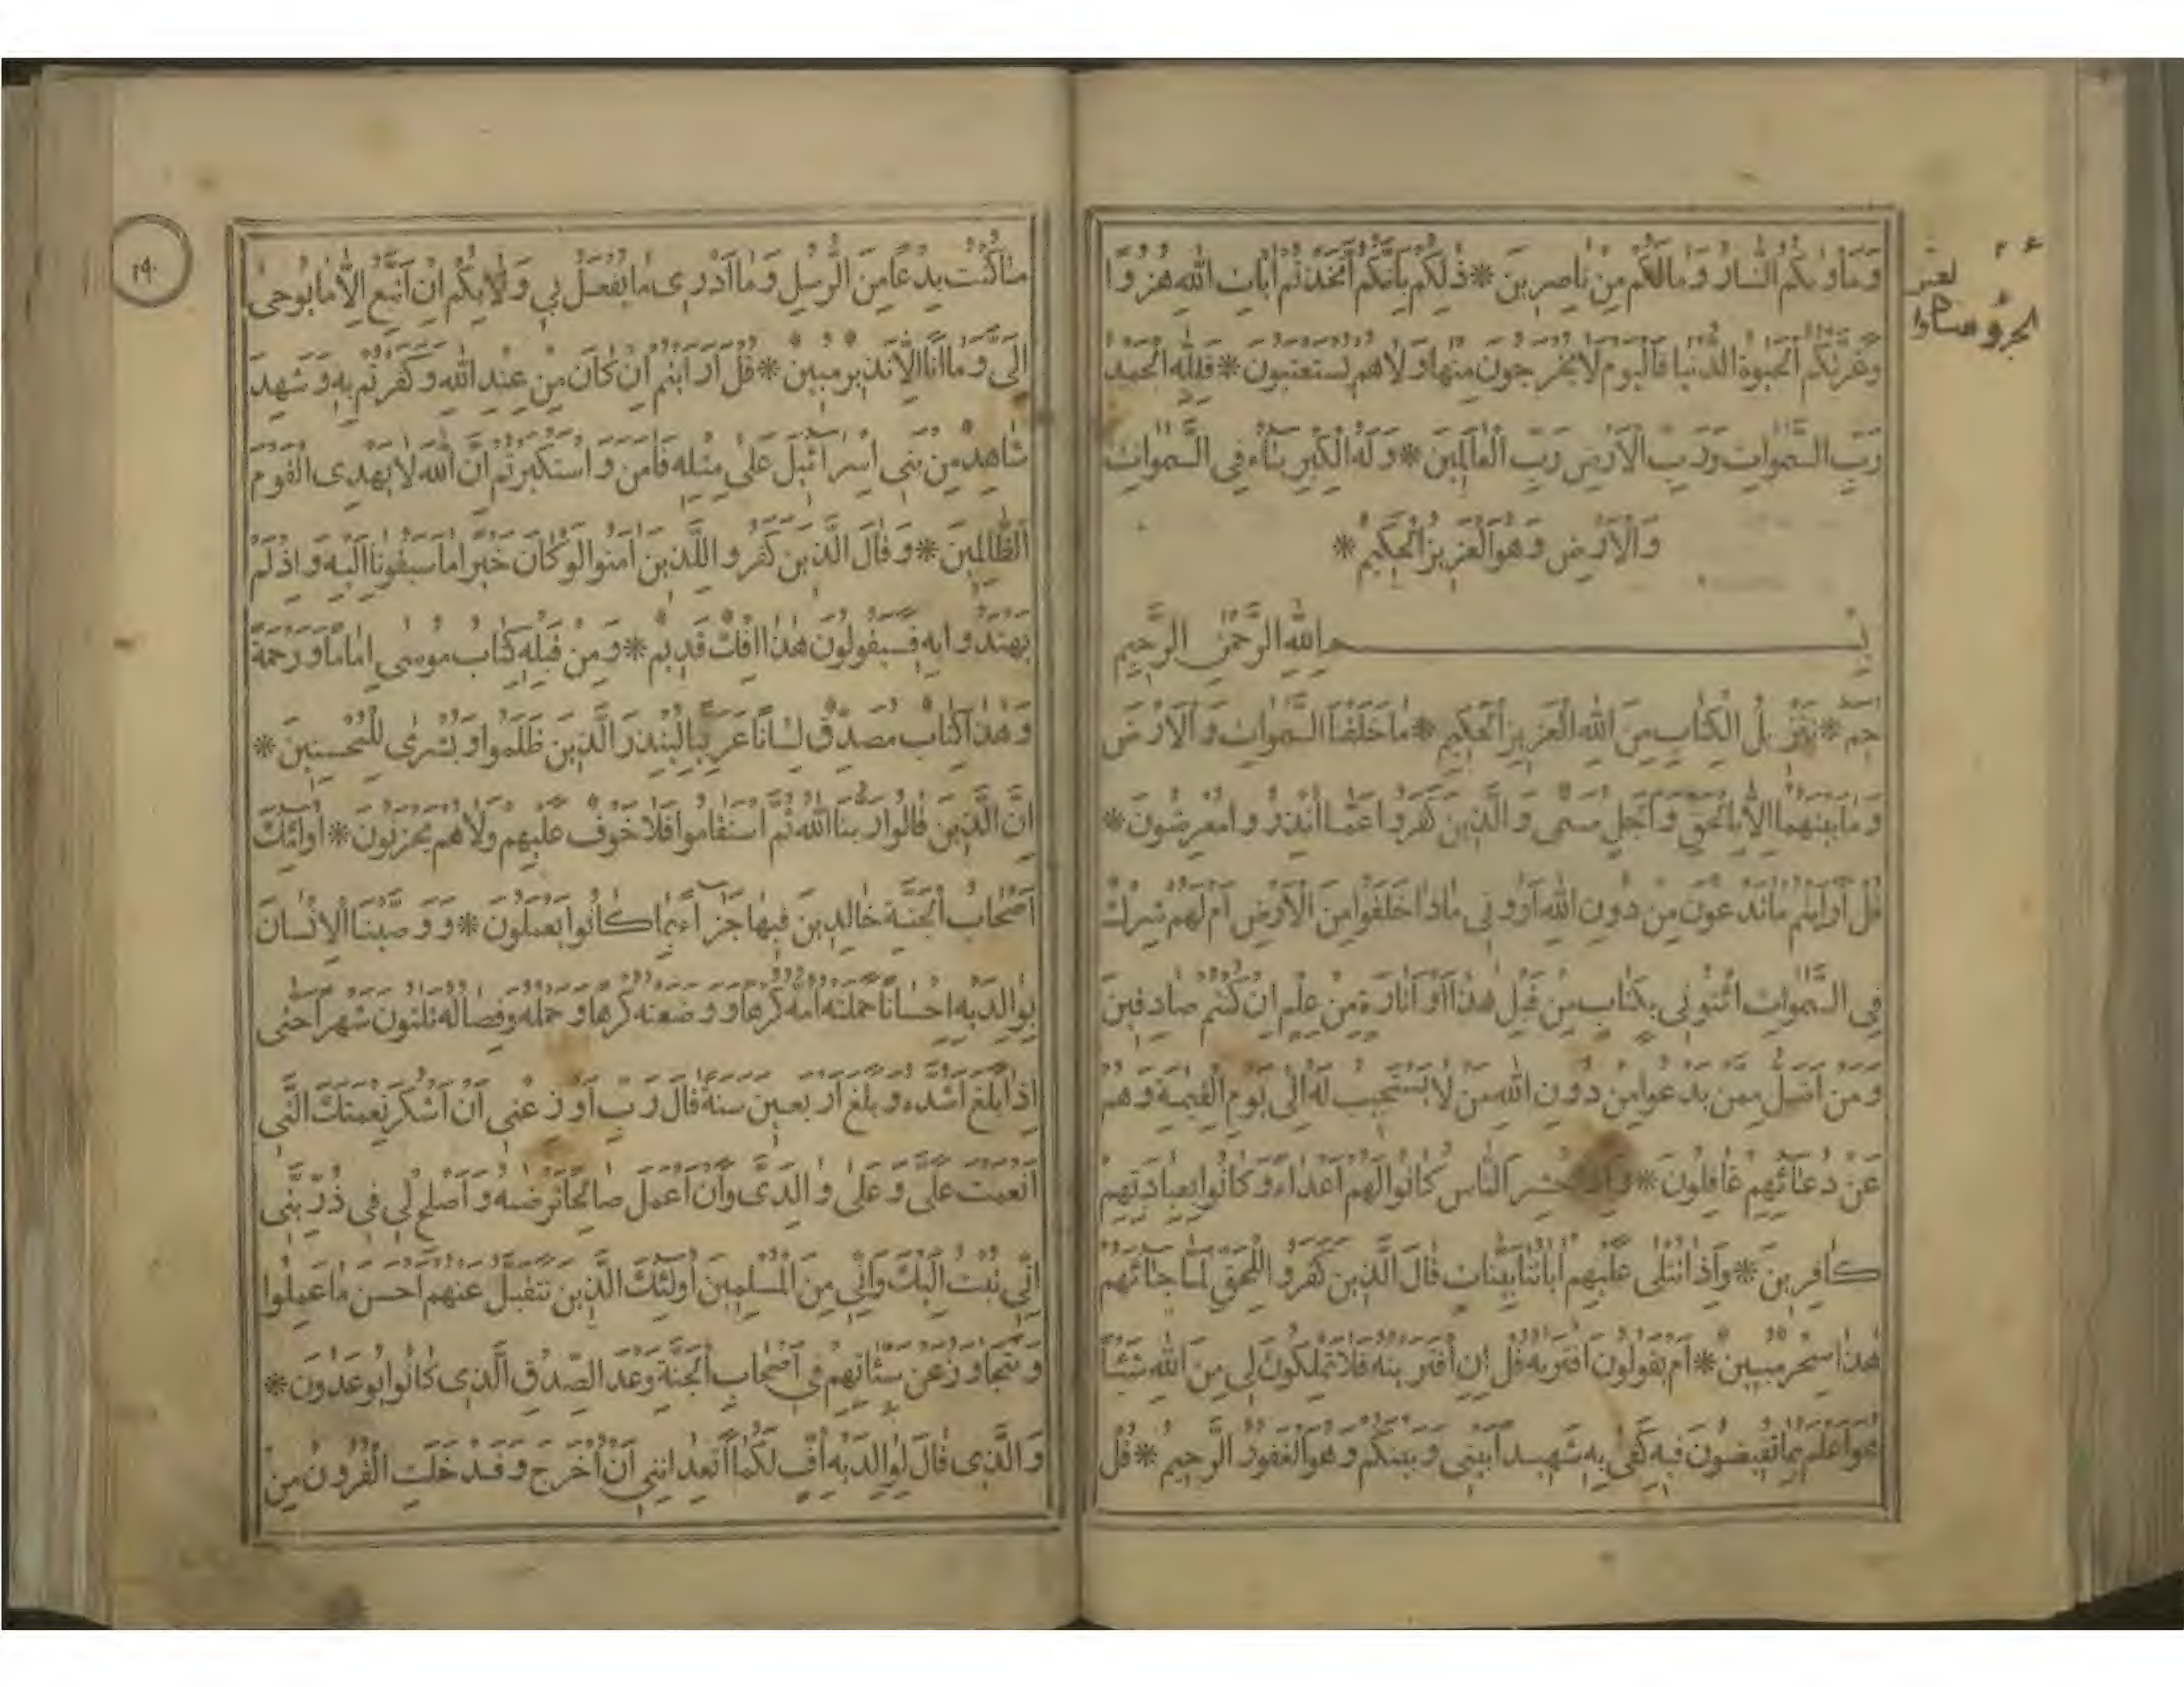 وَمَأْوٰيكُمُ النَّارُ وَمَا لَكُمْ مِنْ نَاصِرِينَ * ذٰلِكُمْ بِأَنَّكُمُ اتَّخَذْتُمْ اٰيَاتِ اللّٰهِ هُزُوًا
وَغَرَّتْكُمُ الْحَيٰوةُ الدُّنْيَا فَالْيَوْمَ لَا يُخْرَجُونَ مِنْهَا وَلَا هُمْ يُسْتَعْتَبُونَ * فَلِلّٰهِ الْحَمْدُ
رَبِّ السَّمٰوَاتِ وَرَبِّ الْاَرْضِ رَبِّ الْعَالَمِينَ * وَلَهُ الْكِبْرِيَاءُ فِي السَّمٰوَاتِ
وَالْاَرْضِ وَهُوَ الْعَزِيزُ الْحَكِيمُ *
بِسْمِ اللّٰهِ الرَّحْمٰنِ الرَّحِيمِ
حٰمٓ * تَنْزِيلُ الْكِتَابِ مِنَ اللّٰهِ الْعَزِيزِ الْحَكِيمِ * مَا خَلَقْنَا السَّمٰوَاتِ وَالْاَرْضَ
وَمَا بَيْنَهُمَا اِلَّا بِالْحَقِّ وَاَجَلٍ مُسَمًّى وَالَّذِينَ كَفَرُوا عَمَّا اُنْذِرُوا مُعْرِضُونَ *
قُلْ اَرَاَيْتُمْ مَا تَدْعُونَ مِنْ دُونِ اللّٰهِ اَرُونِي مَاذَا خَلَقُوا مِنَ الْاَرْضِ اَمْ لَهُمْ شِرْكٌ
فِي السَّمٰوَاتِ ائْتُونِي بِكِتَابٍ مِنْ قَبْلِ هٰذَا اَوْ اَثَارَةٍ مِنْ عِلْمٍ اِنْ كُنْتُمْ صَادِقِينَ
وَمَنْ اَضَلُّ مِمَّنْ يَدْعُوا مِنْ دُونِ اللّٰهِ مَنْ لَا يَسْتَجِيبُ لَهُ اِلٰى يَوْمِ الْقِيٰمَةِ وَهُمْ
عَنْ دُعَائِهِمْ غَافِلُونَ * وَاِذَا حُشِرَ النَّاسُ كَانُوا لَهُمْ اَعْدَاءً وَكَانُوا بِعِبَادَتِهِمْ
كَافِرِينَ * وَاِذَا تُتْلٰى عَلَيْهِمْ اٰيَاتُنَا بَيِّنَاتٍ قَالَ الَّذِينَ كَفَرُوا لِلْحَقِّ لَمَّا جَائَهُمْ
هٰذَا سِحْرٌ مُبِينٌ * اَمْ يَقُولُونَ افْتَرٰيهُ قُلْ اِنِ افْتَرَيْتُهُ فَلَا تَمْلِكُونَ لِي مِنَ اللّٰهِ شَيْئًا
هُوَ اَعْلَمُ بِمَا تُفِيضُونَ فِيهِ كَفٰى بِهِ شَهِيدًا بَيْنِي وَبَيْنَكُمْ وَهُوَ الْغَفُورُ الرَّحِيمُ * قُلْ
١٩٠
مَا كُنْتُ بِدْعًا مِنَ الرُّسُلِ وَمَا اَدْرِي مَا يُفْعَلُ بِي وَلَا بِكُمْ اِنْ اَتَّبِعُ اِلَّا مَا يُوحٰى
اِلَيَّ وَمَا اَنَا اِلَّا نَذِيرٌ مُبِينٌ * قُلْ اَرَاَيْتُمْ اِنْ كَانَ مِنْ عِنْدِ اللّٰهِ وَكَفَرْتُمْ بِهِ وَشَهِدَ
شَاهِدٌ مِنْ بَنِي اِسْرَائِيلَ عَلٰى مِثْلِهِ فَاٰمَنَ وَاسْتَكْبَرْتُمْ اِنَّ اللّٰهَ لَا يَهْدِي الْقَوْمَ
الظَّالِمِينَ * وَقَالَ الَّذِينَ كَفَرُوا لِلَّذِينَ اٰمَنُوا لَوْ كَانَ خَيْرًا مَا سَبَقُونَا اِلَيْهِ وَاِذْ لَمْ
يَهْتَدُوا بِهِ فَسَيَقُولُونَ هٰذَا اِفْكٌ قَدِيمٌ * وَمِنْ قَبْلِهِ كِتَابُ مُوسٰى اِمَامًا وَرَحْمَةً
وَهٰذَا كِتَابٌ مُصَدِّقٌ لِسَانًا عَرَبِيًّا لِيُنْذِرَ الَّذِينَ ظَلَمُوا وَبُشْرٰى لِلْمُحْسِنِينَ *
اِنَّ الَّذِينَ قَالُوا رَبُّنَا اللّٰهُ ثُمَّ اسْتَقَامُوا فَلَا خَوْفٌ عَلَيْهِمْ وَلَا هُمْ يَحْزَنُونَ * اُولٰئِكَ
اَصْحَابُ الْجَنَّةِ خَالِدِينَ فِيهَا جَزَاءً بِمَا كَانُوا يَعْمَلُونَ * وَوَصَّيْنَا الْاِنْسَانَ
بِوَالِدَيْهِ اِحْسَانًا حَمَلَتْهُ اُمُّهُ كُرْهًا وَوَضَعَتْهُ كُرْهًا وَحَمْلُهُ وَفِصَالُهُ ثَلٰثُونَ شَهْرًا حَتّٰى
اِذَا بَلَغَ اَشُدَّهُ وَبَلَغَ اَرْبَعِينَ سَنَةً قَالَ رَبِّ اَوْزِعْنِي اَنْ اَشْكُرَ نِعْمَتَكَ الَّتِي
اَنْعَمْتَ عَلَيَّ وَعَلٰى وَالِدَيَّ وَاَنْ اَعْمَلَ صَالِحًا تَرْضٰيهُ وَاَصْلِحْ لِي فِي ذُرِّيَّتِي
اِنِّي تُبْتُ اِلَيْكَ وَاِنِّي مِنَ الْمُسْلِمِينَ اُولٰئِكَ الَّذِينَ نَتَقَبَّلُ عَنْهُمْ اَحْسَنَ مَا عَمِلُوا
وَنَتَجَاوَزُ عَنْ سَيِّئَاتِهِمْ فِي اَصْحَابِ الْجَنَّةِ وَعْدَ الصِّدْقِ الَّذِي كَانُوا يُوعَدُونَ *
وَالَّذِي قَالَ لِوَالِدَيْهِ اُفٍّ لَكُمَا اَتَعِدَانِنِي اَنْ اُخْرَجَ وَقَدْ خَلَتِ الْقُرُونُ مِنْ